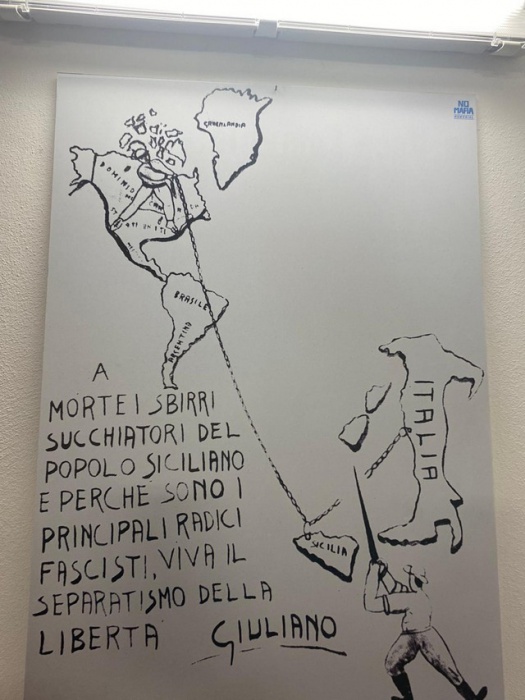 NO
MAFIA
GROENLANDIA
DOMINIO
BRASILE
ARGENTINO
ITALIA
SICILIA
A
MORTE I SBIRRI
SUCCHIATORI DEL
POPOLO SICILIANO
E PERCHE SONO I
PRINCIPALI RADICI
FASCISTI, VIVA IL
SEPARATISMO DELLA
LIBERTA GIULIANO